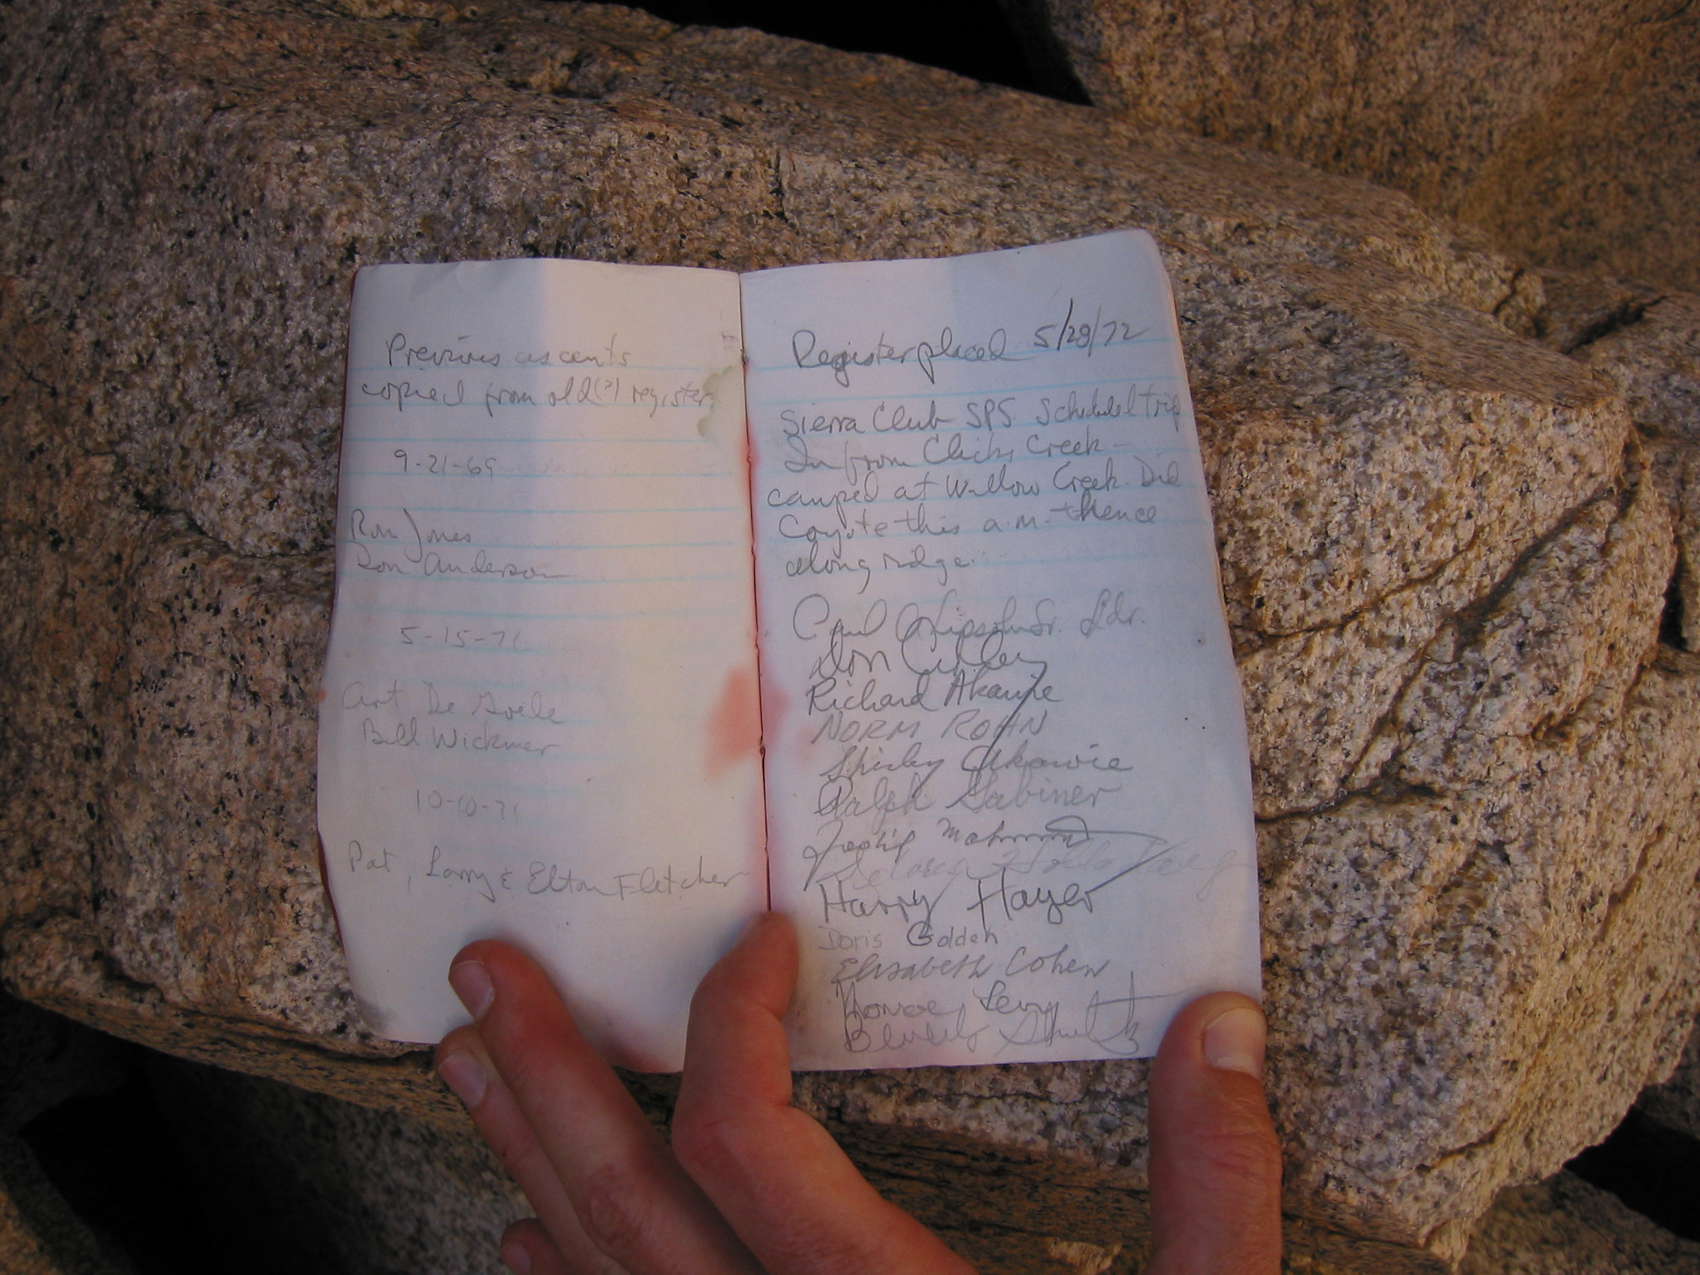 Previous ascents
copied from old (?) register
9-21-69
Ron Jones
Don Anderson
5-15-71
Art De Goede
Bill Wickmer
10-10-71
Pat, Larry & Elton Fletcher
Register placed 5/28/72
Sierra Club SPS Scheduled trip
In from Clicks Creek -
camped at Willow Creek. Did
Coyote this a.m. thence
along ridge.
Paul Lipsohn Sr. Ldr.
Don Culley
Richard Akawie
NORM ROHN
Shirley Akawie
Ralph Gabiner
Harry Hayes
Doris Golden
Elisabeth Cohen
Monroe Levy